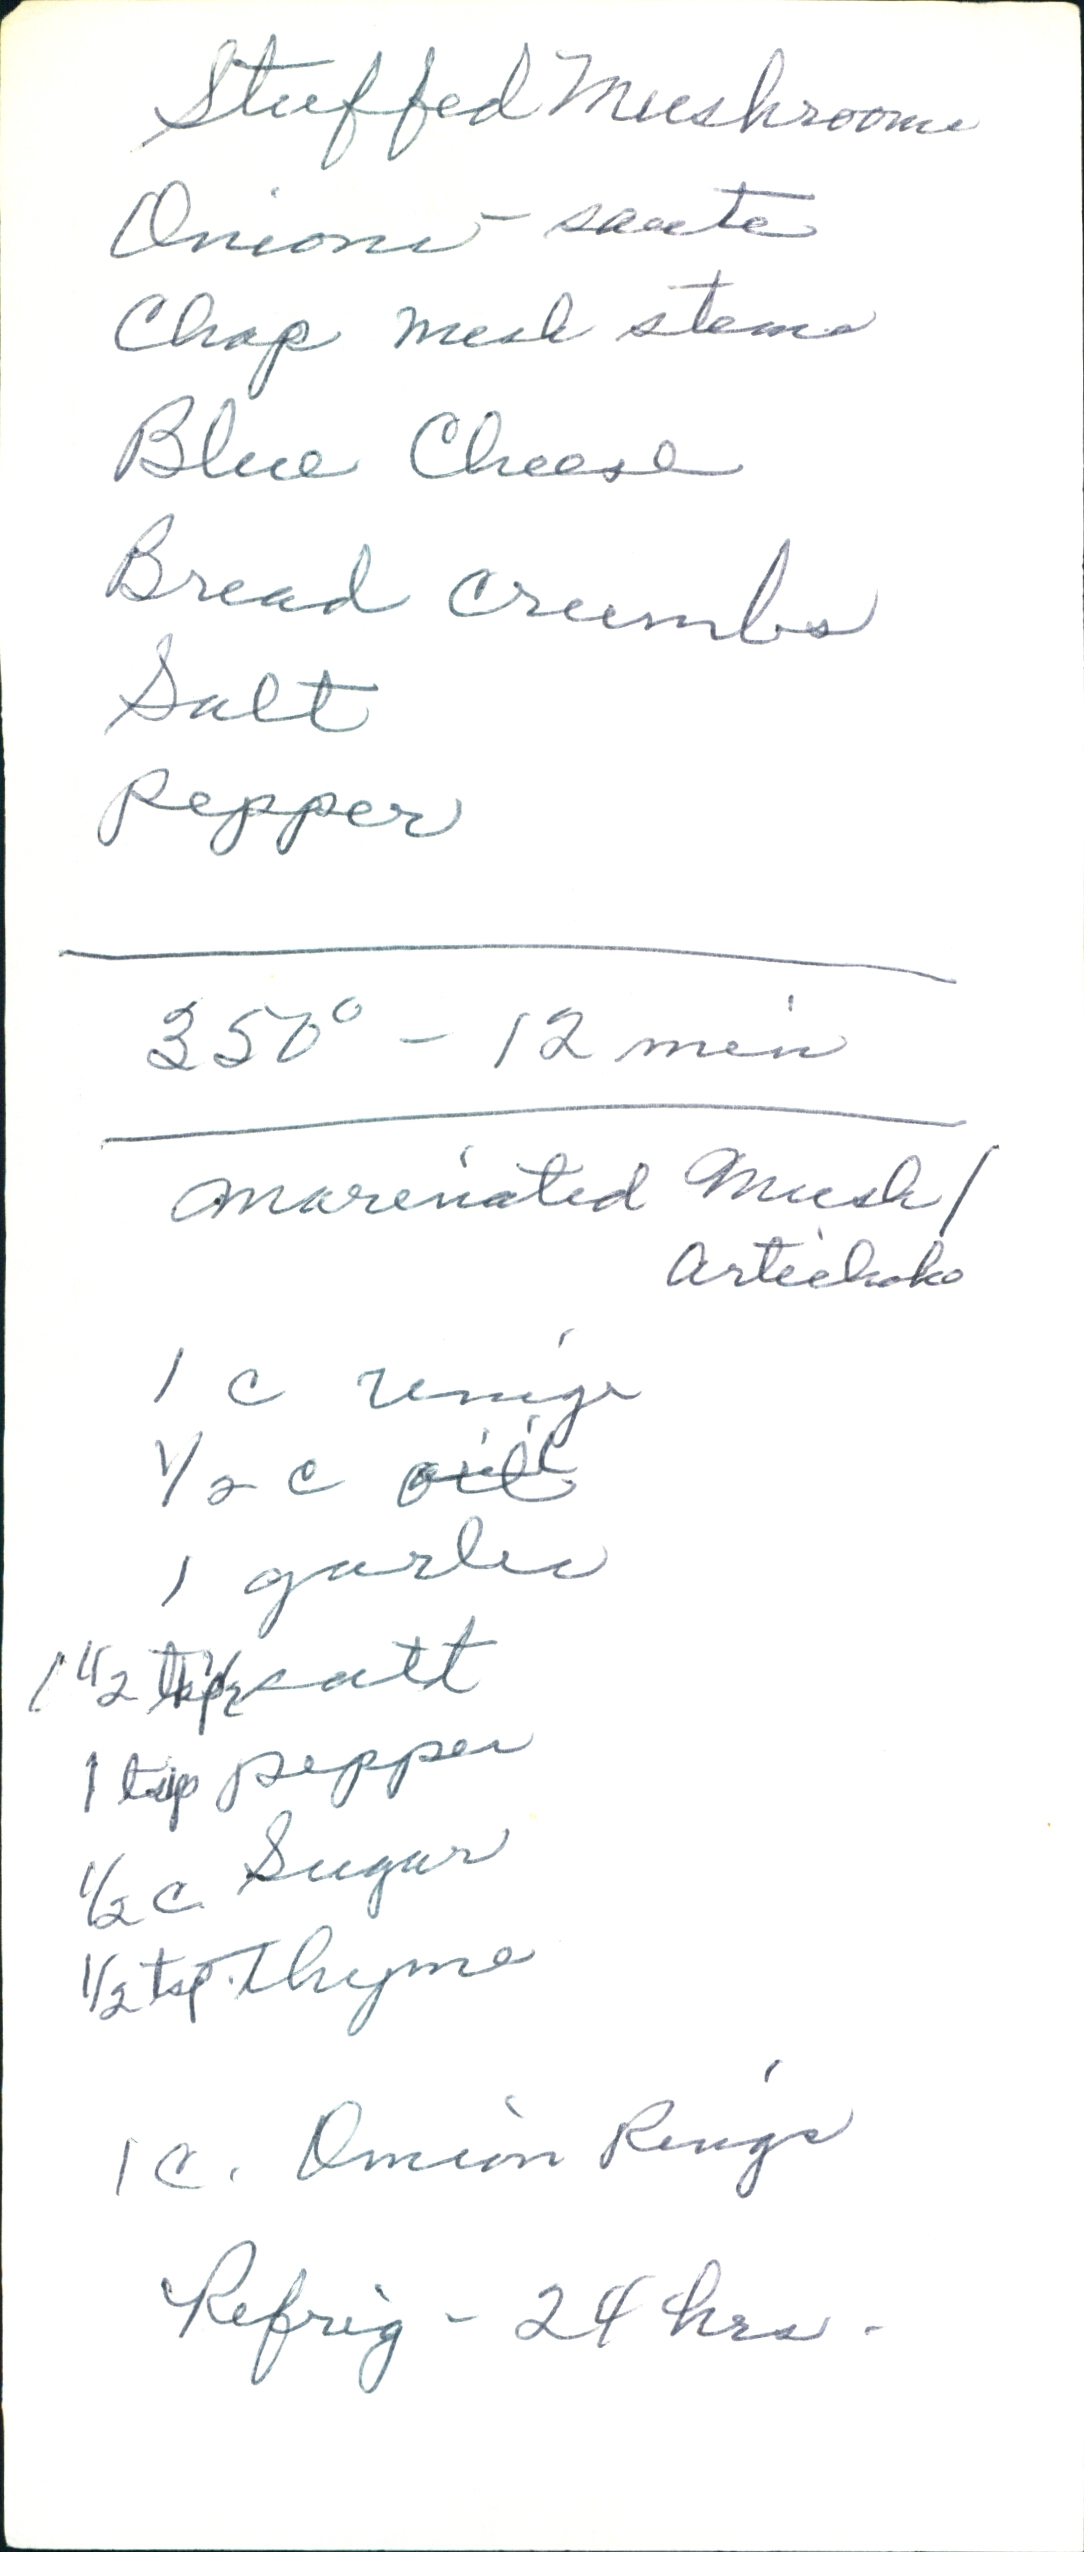 Stuffed Mushrooms
Onions - saute
Chop Mush stems
Blue Cheese
Bread Crumbs
Salt
Pepper
350° - 12 min
Marinated Mush/
Artichoke
1 c vinigr
1/2 c oil
1 garlic
1 1/2 tsp salt
1 tsp pepper
1/2 c Sugar
1/2 tsp. Thyme
1 C. Onion Rings
Refrig - 24 hrs.